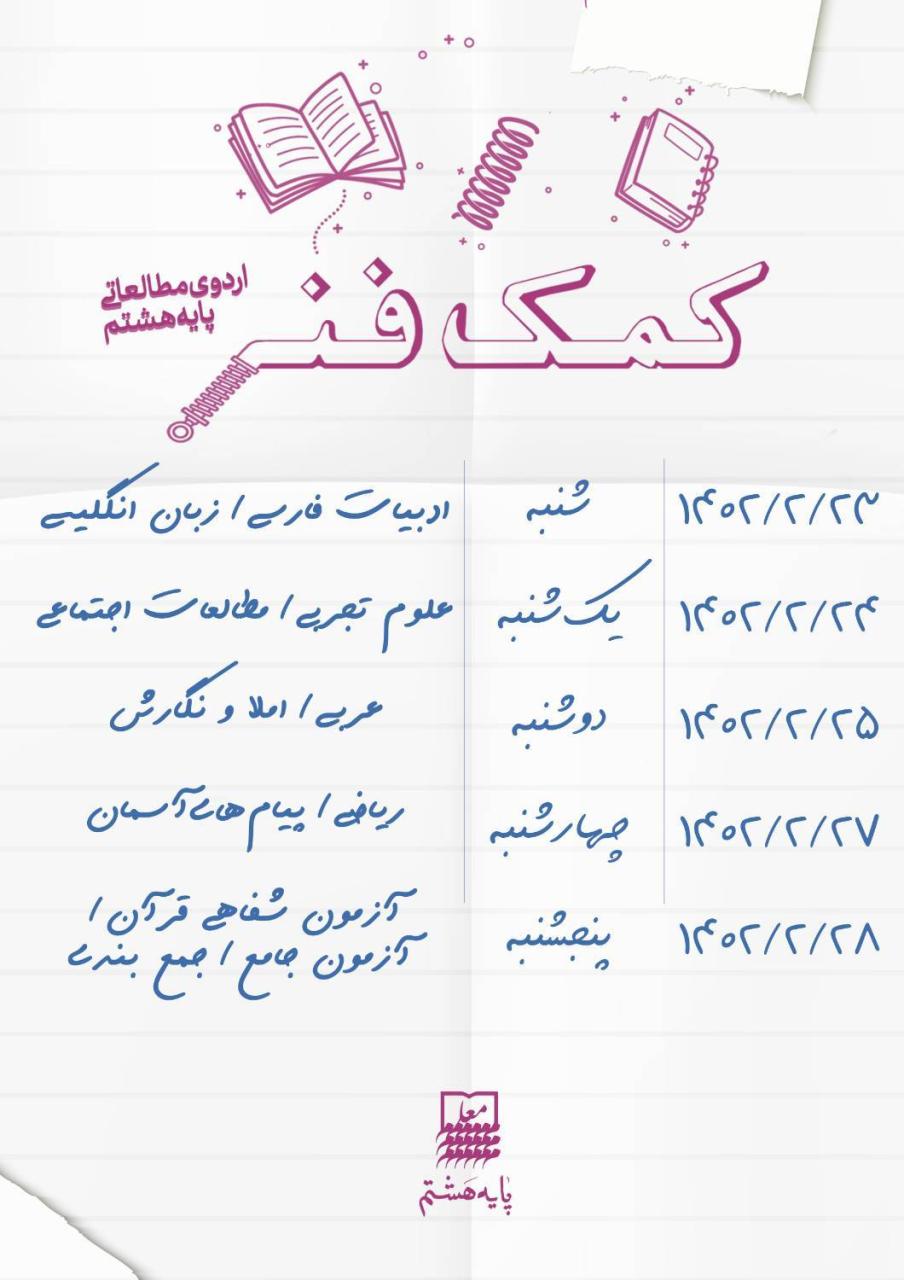 کمک فنر
اردوی مطالعاتی
پایه هشتم
۱۴۰۲/۲/۲۳ شنبه ادبیات فارسی / زبان انگلیسی
۱۴۰۲/۲/۲۴ یک شنبه علوم تجربی / مطالعات اجتماعی
۱۴۰۲/۲/۲۵ دوشنبه عربی / املا و نگارش
۱۴۰۲/۲/۲۷ چهارشنبه ریاضی / پیام های آسمان
۱۴۰۲/۲/۲۸ پنجشنبه آزمون شفاهی قرآن /
آزمون جامع / جمع بندی
معلم
پایه هشتم